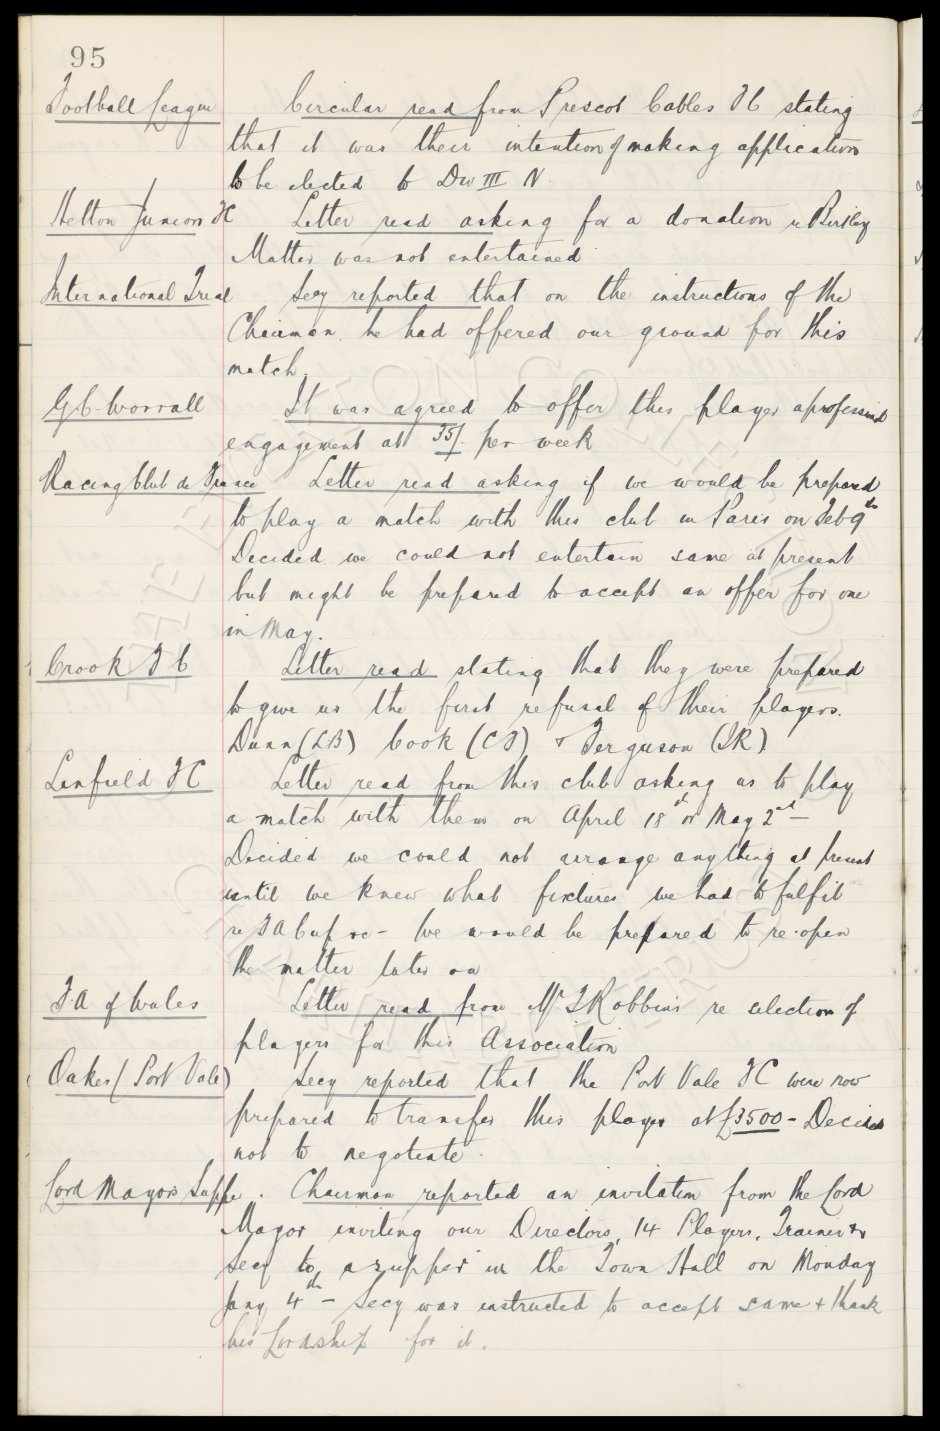 95
Football League Circular read from Prescot Cables FC stating
that it was their intention of making application
to be elected to Div III N.
Hetton Juniors FC Letter read asking for a donation re Birtley
Matter was not entertained
International Trial Secy reported that on the instructions of the
Chairman he had offered our ground for this
match.
G C Worrall It was agreed to offer this player a professional
engagement at 35/- per week
Racing Club de France Letter read asking if we would be prepared
to play a match with this club in Paris on Feb 9th
Decided we could not entertain same at present
but might be prepared to accept an offer for one
in May.
Crook F C Letter read stating that they were prepared
to give us the first refusal of their players.
Dunn (LB) Cook (CF) & Ferguson (IR)
Linfield FC Letter read from this club asking us to play
a match with them on April 18th or May 2nd –
Decided we could not arrange anything at present
until we knew what fixtures we had to fulfil
re FA Cup &c - We would be prepared to re-open
the matter later on
F.A of Wales Letter read from Mr T Robbins re selection of
players for this Association
Oakes (Port Vale) Secy reported that the Port Vale FC were now
prepared to transfer this player at £3500 - Decided
not to negotiate.
Lord Mayors Supper. Chairman reported an invitation from the Lord
Mayor inviting our Directors, 14 Players, Trainer &
Secy to a supper in the Town Hall on Monday
Jany 4th - Secy was instructed to accept same & thank
his Lordship for it.